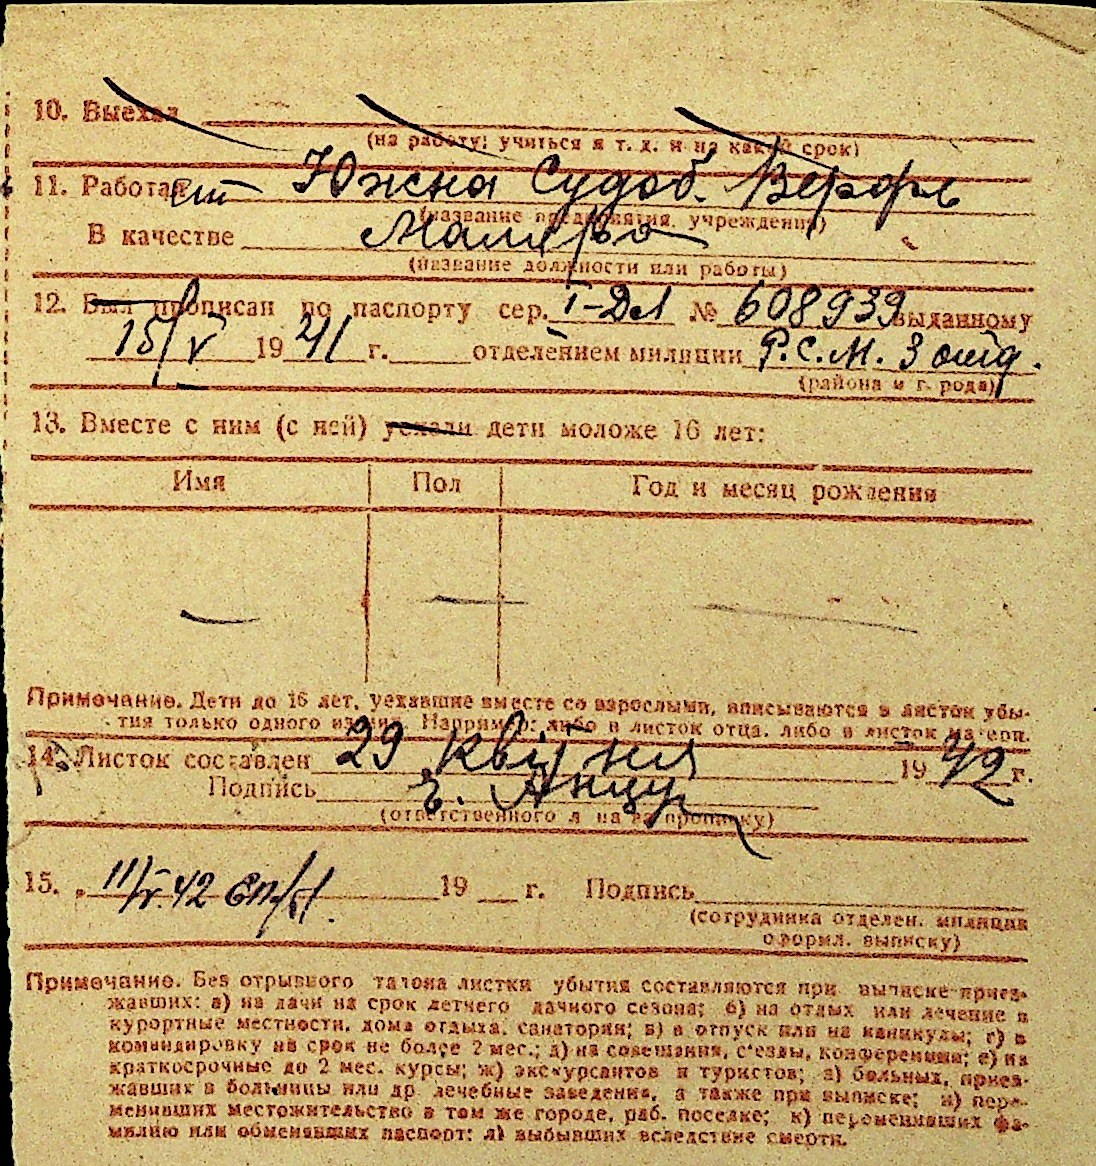 10. Выехал
(на работу, учиться и т. д. и на какой срок)
11. Работает Южна Судоб. Верфь
(название предприятия, учреждения)
В качестве Маляра
(название должности или работы)
12. Был прописан по паспорту сер. I-ДЛ № 608939 выданному
15/V 1941 г. отделением милиции Р.С.М. 3 отд.
(района и города)
13. Вместе с ним (с ней) уехали дети моложе 16 лет:
Имя Пол Год и месяц рождения
— — —
Примечание. Дети до 16 лет, уехавшие вместе со взрослыми, вписываются в листок убы-
тия только одного из них. Например: либо в листок отца, либо в листок матери.
14. Листок составлен 29 квітня 1942 г.
Подпись
(ответственного лица за прописку)
15. 11/V.42 19 г. Подпись
(сотрудника отделен. милиции
оформл. выписку)
Примечание. Без отрывного талона листки убытия составляются при выписке приез-
жавших: а) на дачи на срок летнего дачного сезона; б) на отдых или лечение в
курортные местности, дома отдыха, санатории; в) в отпуск или на каникулы; г) в
командировку на срок не более 2 мес.; д) на совещания, с'езды, конференции; е) на
краткосрочные до 2 мес. курсы; ж) экскурсантов и туристов; з) больных, приез-
жавших в больницы или др. лечебные заведения, а также при выписке; и) пере-
менивших местожительство в том же городе, раб. поселке; к) переменивших фа-
милию или обменявших паспорт; л) выбывших вследствие смерти.